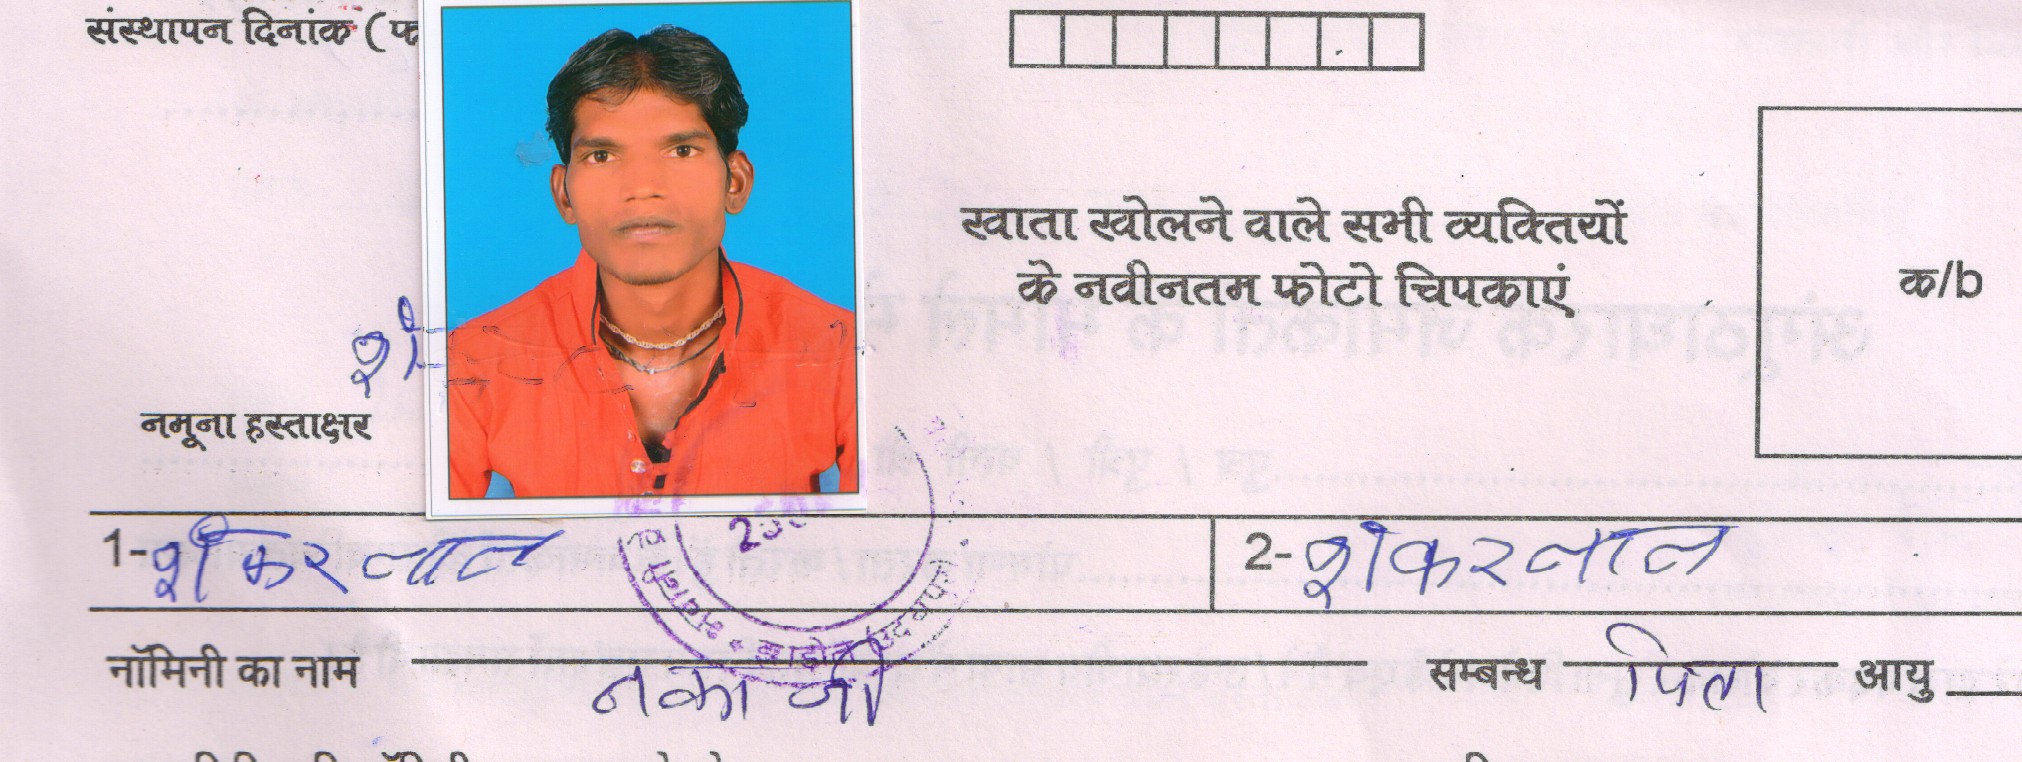 संस्थापन दिनांक ( फ
खाता खोलने वाले सभी व्यक्तियों
के नवीनतम फोटो चिपकाएं
क/b
शं
नमूना हस्ताक्षर
1- शंकरलाल
2- शंकरलाल
नॉमिनी का नाम नका जी सम्बन्ध पिता आयु